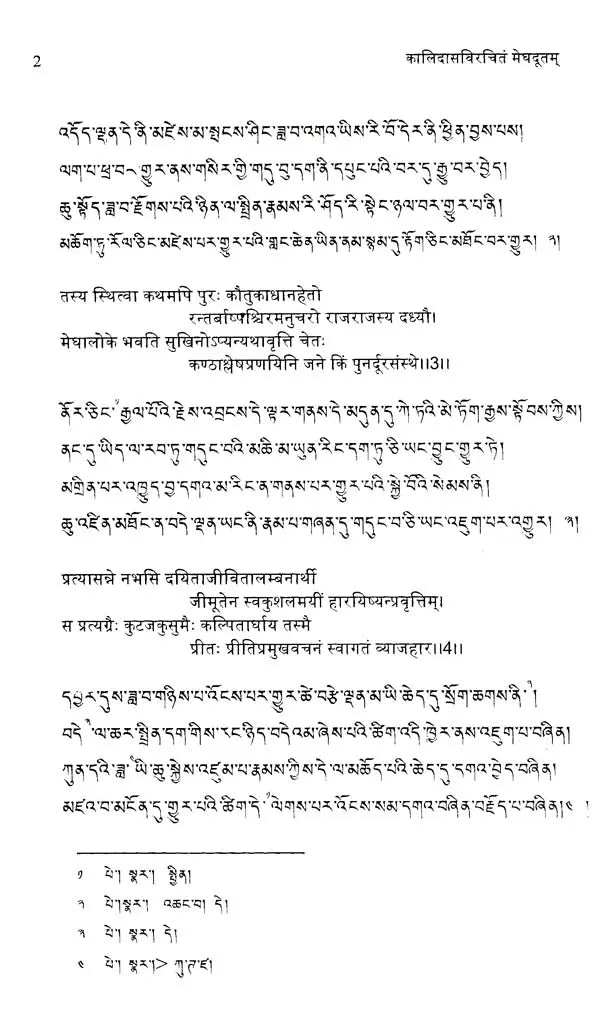 2
कालिदासविरचितं मेघदूतम्
འདོད་ལྡན་དེ་ནི་མཛེས་མ་སྤངས་ཤིང་ཟླ་བ་འགའ་ཡིས་རི་བོ་དེར་ནི་ཕྱིན་བྱས་པས།
ལག་པ་ཕྲ་བར་གྱུར་ནས་གསེར་གྱི་གདུ་བུ་དག་ནི་དཔུང་པའི་བར་དུ་རྒྱུ་བར་བྱེད།
ཆུ་སྟོད་ཟླ་བ་རྫོགས་པའི་ཉིན་ལ་སྤྲིན་རྣམས་རི་ཤོད་རི་སྟེང་ཉལ་བར་གྱུར་པ་ནི།
མཆོག་ཏུ་རོལ་ཅིང་མཛེས་པར་གྱུར་པའི་གླང་ཆེན་ཡིན་ནམ་སྙམ་དུ་རྟོག་ཅིང་མཐོང་བར་གྱུར། ༢།
तस्य स्थित्वा कथमपि पुरः कौतुकाधानहेतो
रन्तर्बाष्पश्चिरमनुचरो राजराजस्य दध्यौ।
मेघालोके भवति सुखिनोऽप्यन्यथावृत्ति चेतः
कण्ठाश्लेषप्रणयिनि जने किं पुनर्दूरसंस्थे।।3।।
ནོར་ཅིང་༡རྒྱལ་པོའི་རྗེས་འབྲངས་དེ་ལྟར་གནས་དེ་མདུན་དུ་ཀེ་ཏའི་མེ་ཏོག་རྒྱས་སྟོབས་ཀྱིས།
ནང་དུ་ཡིད་ལ་རབ་ཏུ་གདུང་བའི་མཆི་མ་ཡུན་རིང་དག་ཏུ་ཅི་ཡང་བྱུང་གྱུར་ཏེ།
མགྲིན་པར་འཁྱུད་བྱ་དགའ་མ་རིང་ན་གནས་པར་གྱུར་པའི་སྐྱེ་བོའི་སེམས་ནི།
ཆུ་འཛིན་མཐོང་ན་བདེ་ལྡན་ཡང་ནི་རྣམ་པ་གཞན་དུ་གདུང་བ་ཅི་ཡང་འཇུག་པར་འགྱུར། ༣།
प्रत्यासन्ने नभसि दयिताजीवितालम्बनार्थी
जीमूतेन स्वकुशलमयीं हारयिष्यन्प्रवृत्तिम्।
स प्रत्यग्रैः कुटजकुसुमैः कल्पितार्घाय तस्मै
प्रीतः प्रीतिप्रमुखवचनं स्वागतं व्याजहार।।4।।
དཔྱར་དུས་ཟླ་བ་གཉིས་པ་འོངས་པར་གྱུར་ཚེ་བརྩེ་ལྡན་མ་ཡི་ཆེད་དུ་སྲོག་ཆགས་ནི་།
བདེ་ལ་ཆར་སྤྲིན་དག་གིས་རང་ཉིད་བདེའམ་ཞེས་པའི་ཚིག་འདི་ཁྱེར་ནས་འཇུག་པ་བཞིན།
ཀུན་དའི་ཟླ་ཡི་ཆུ་སྐྱེས་འཛུམ་པ་རྣམས་ཀྱིས་དེ་ལ་མཆོད་པའི་ཆེད་དུ་དགའ་བྱེད་བཞིན།
མཛའ་བ་མངོན་དུ་གྱུར་པའི་ཚིག་དེ་ལེགས་པར་འོངས་སམ་དགའ་བཞིན་བརྗོད་པ་བཞིན། ༤ །
༡ པེ། སྣར། སྤྱིན།
༢ པེ། སྣར། འཆང་བ། དེ།
༣ པེ། སྣར། དེ།
༤ པེ། སྣར།> ཀུ་ཊ་ཛ།